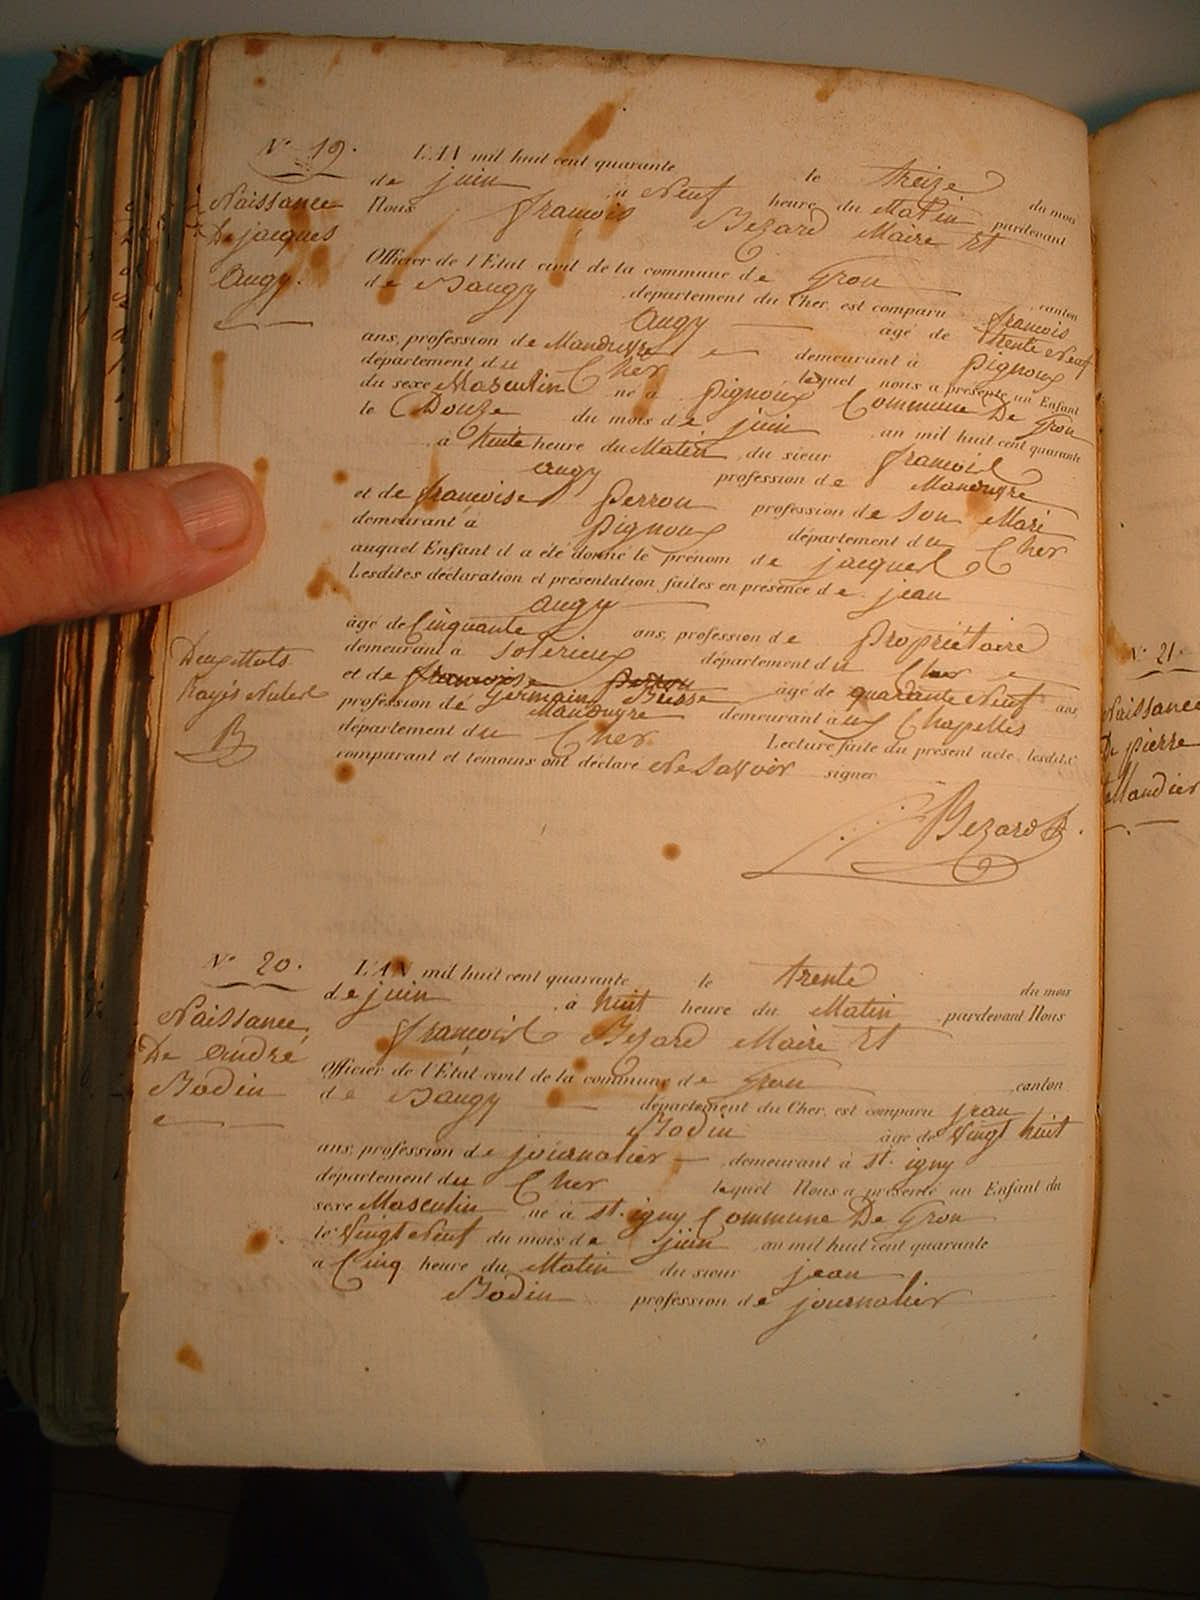 N° 19.
Naissance
De jacques
Augy.
L'AN mil huit cent quarante le treize du mois
de juin à Neuf heure du Matin pardevant
Nous françois Bezard Maire Et
Officier de l'Etat civil de la commune de Gron canton
de Baugy département du Cher, est comparu françois
Augy âgé de trente Neuf
ans, profession de Manœuvre demeurant à pignoux
département du Cher lequel nous a présenté un Enfant
du sexe Masculin né à pignoux Commune De Gron
le Douze du mois de juin an mil huit cent quarante
à heure du Matin du sieur françois
augy profession de Manœuvre
et de françoise perron profession de Son Mari
demeurant à pignoux département du Cher
auquel Enfant il a été donné le prénom de jacques
Lesdites déclaration et présentation faites en présence de jean
augy
âgé de Cinquante ans, profession de propriétaire
demeurant à Solérieux département du Cher
et de françoise perron germain Busse âgé de quarante Neuf ans
profession de Manœuvre demeurant à ux Chapelles
département du Cher Lecture faite du présent acte, lesdits
comparant et témoins ont déclaré Ne Savoir signer
Deux Mots
Rayés Nulest
B
Bezard
N° 20.
Naissance
De André
Bodin
L'AN mil huit cent quarante le trente du mois
de juin à huit heure du Matin pardevant Nous
françois Bezard Maire Et
Officier de l'Etat civil de la commune de Gron canton
de Baugy département du Cher, est comparu jean
Bodin âgé de Vingt huit
ans, profession de journalier demeurant à St. igny
département du Cher lequel Nous a présenté un Enfant du
sexe Masculin né à St. igny Commune De Gron
le Vingt Neuf du mois de juin an mil huit cent quarante
à Cinq heure du Matin du sieur jean
Bodin profession de journalier
N° 21
Naissance
De pierre
Mandier